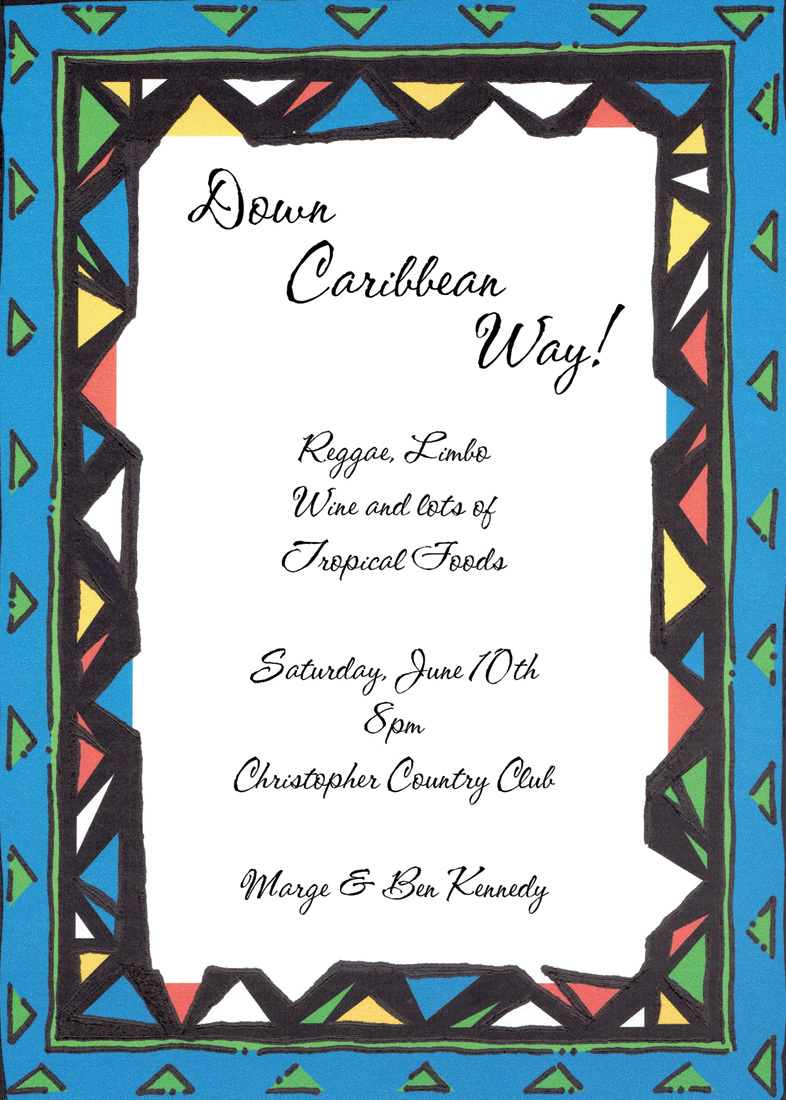 Down
Caribbean
Way!
Reggae, Limbo
Wine and lots of
Tropical Foods
Saturday, June 10th
8pm
Christopher Country Club
Marge & Ben Kennedy